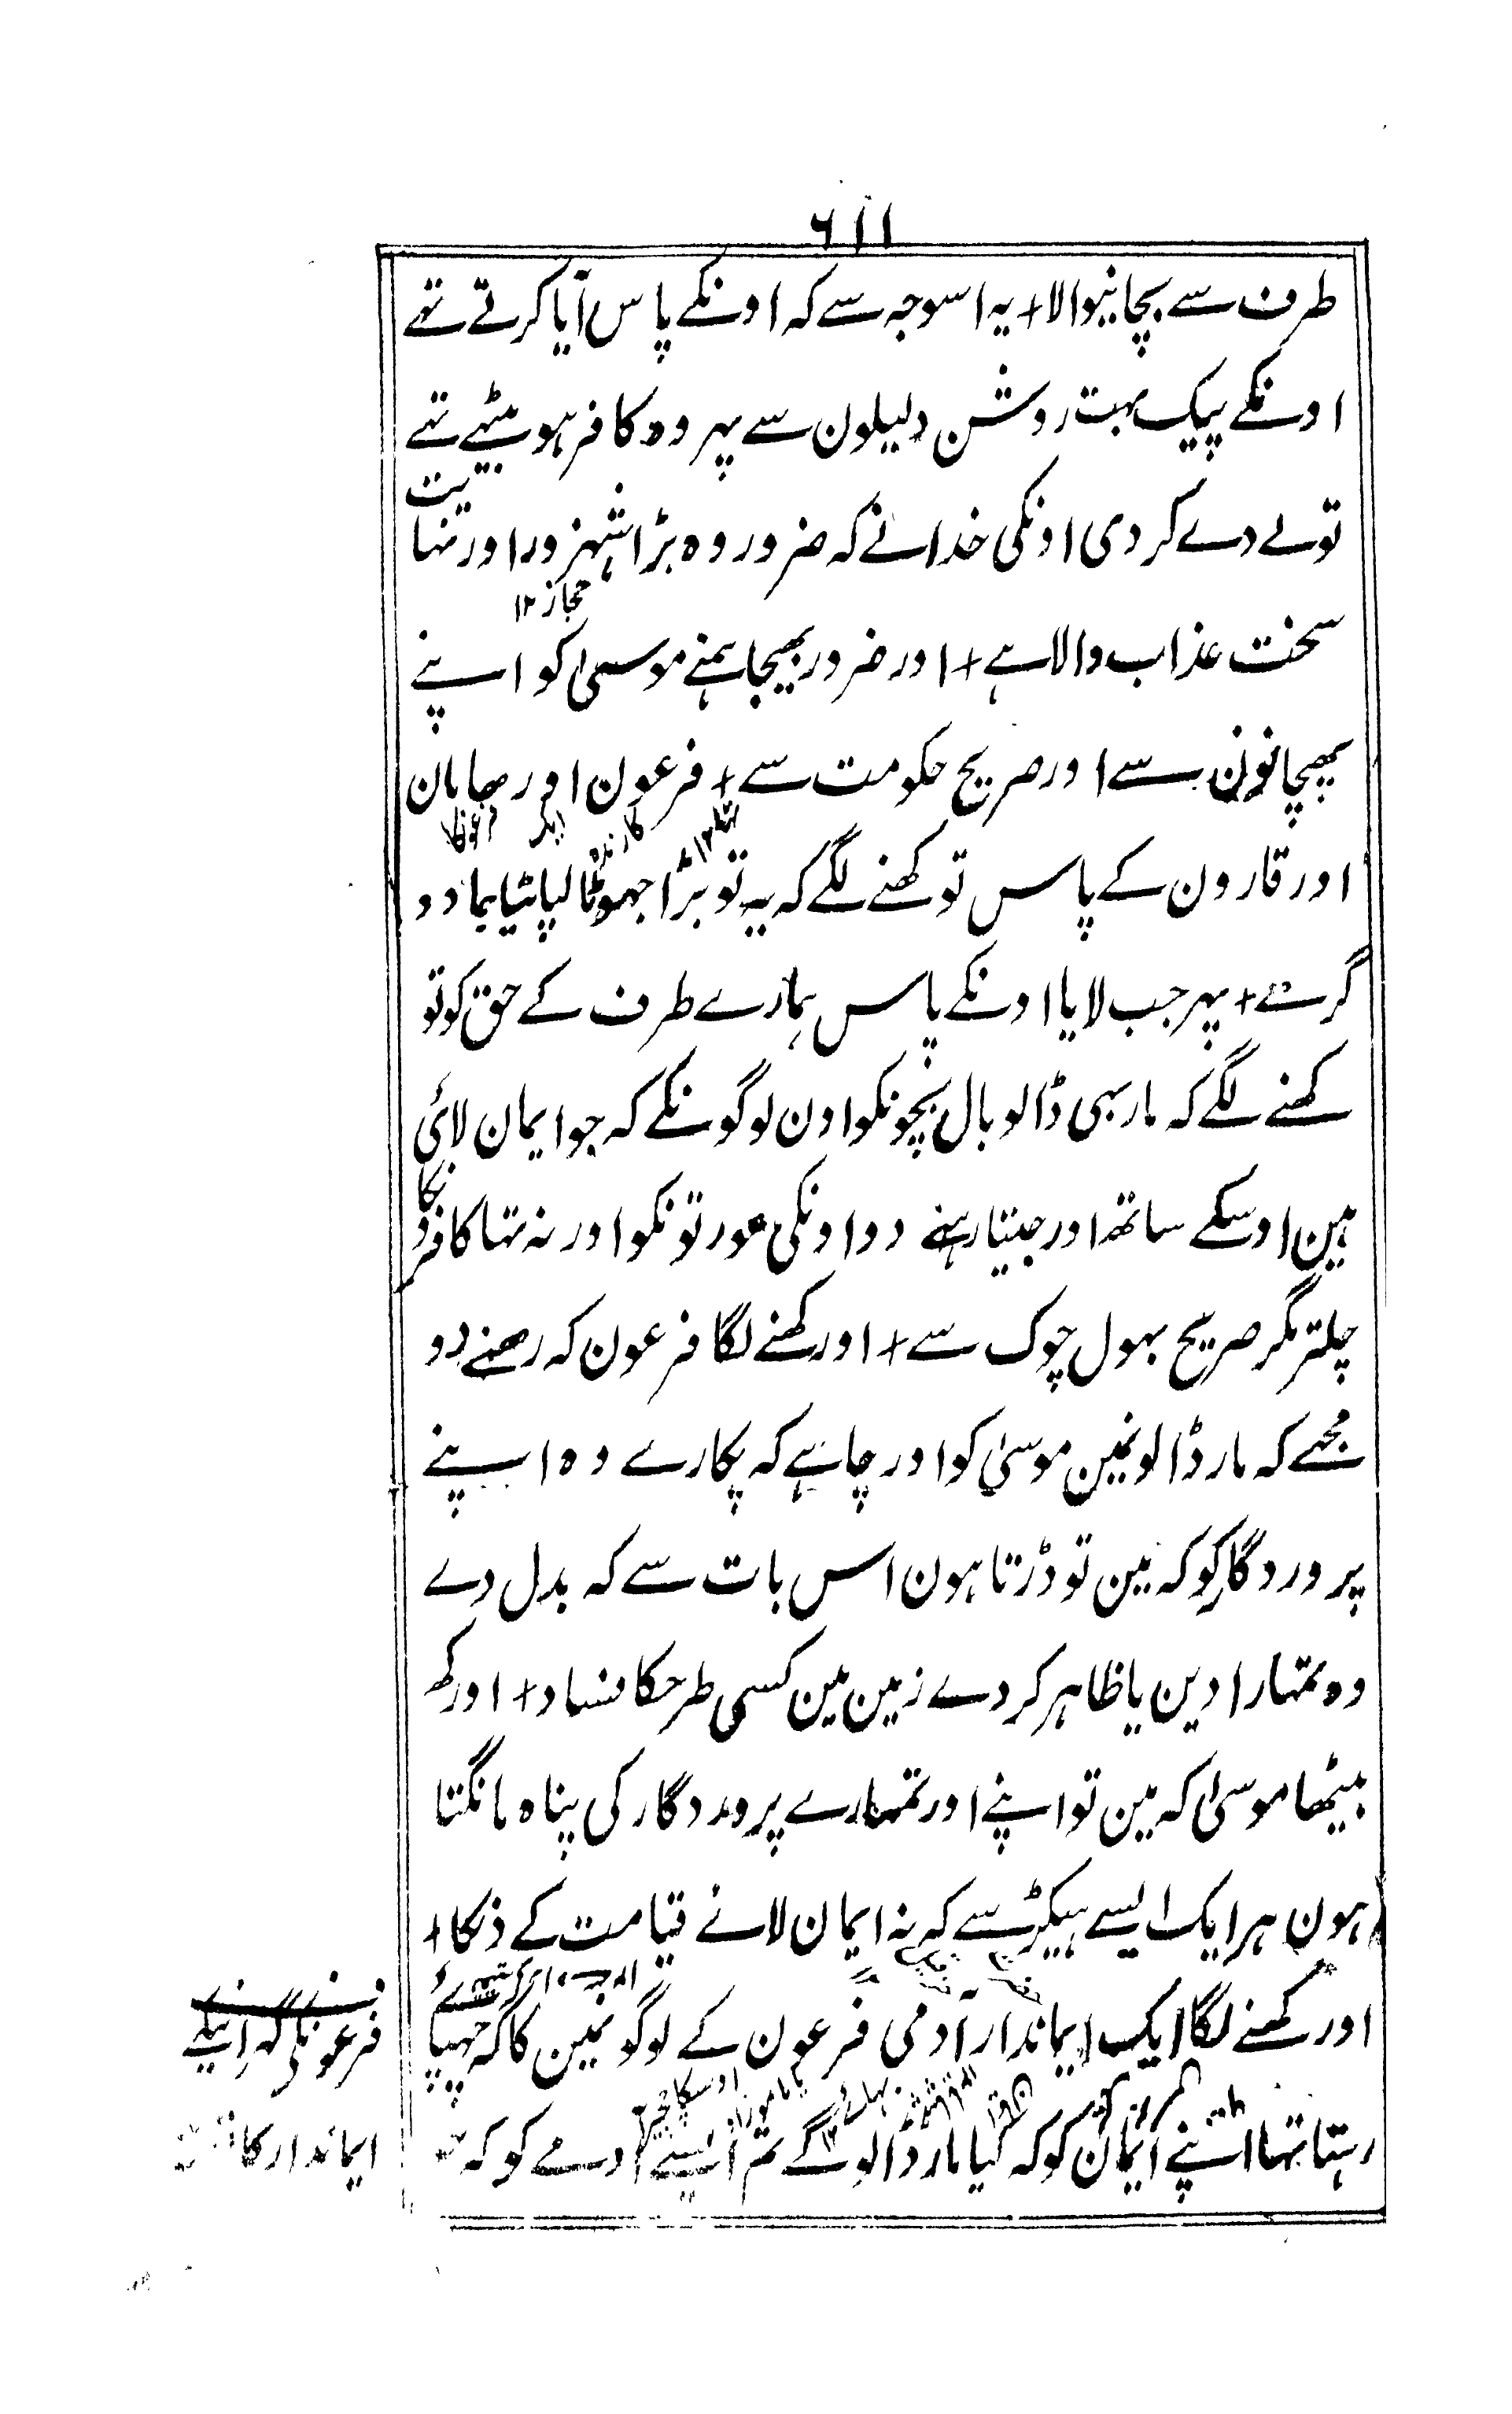 ۶۱۱
طرف سے بچانیوالا + یہ اسوجہ سے کہ اونکے پاس آیا کرتے تہے
اونکے پیک بہت روشن دلیلون سے پہر وہ کافر ہو بیٹہے تہے
تولے دے کردی اونکی خدانے کہ ضرور وہ بڑا شہزور اور نہایت
حجاز ۱۲
سخت عذاب والا ہے + اور ضرور بھیجا ہمنے موسیٰ کو اپنے
پہچانون سے اور صریح حکومت سے + فرعون اور ہامان
اور قارون کے پاس تو کھنے لگے کہ یہ تو بڑا جہوٹا لپاٹیا جادو
گرہے + پہر جب لایا اونکے پاس ہمارے طرف کے حق کو تو
کھنے لگے کہ مار ہی ڈالو بال بچونکو اون لوگونکے کہ جو ایمان لائی
ہین اوسکے ساتھ اور جیتا رہنے دو اونکی عورتونکو اور نہ تہا کافرونکا
چلتر مگر صریح بہول چوک سے + اور کھنے لگا فرعون کہ رہنے دو
مجہے کہ مار ڈالونمین موسیٰ کو اور چاہے کہ پکارے وہ اپنے
پروردگار کو کہ مین تو ڈرتا ہون اس بات سے کہ بدل دے
وہ تمہارا دین یا ظاہر کر دے زمین مین کسی طرحکا فساد + اور کھ
بیٹھا موسیٰ کہ مین تو اپنے اور تمہارے پروردگار کی پناہ مانگتا
ہون ہر ایک ایسے ہیکڑ سے کہ نہ ایمان لائے قیامت کے دنکا +
اور کھنے لگا ایک ایماندار آدمی فرعون کے لوگونمین کا کہ چہپا
فرعونکی گہرانیکے
رہتا تہا اپنے ایمان کو کہ کیا مار ڈالوگے تم ایسے آدمے کو کہ
ایماندار کا